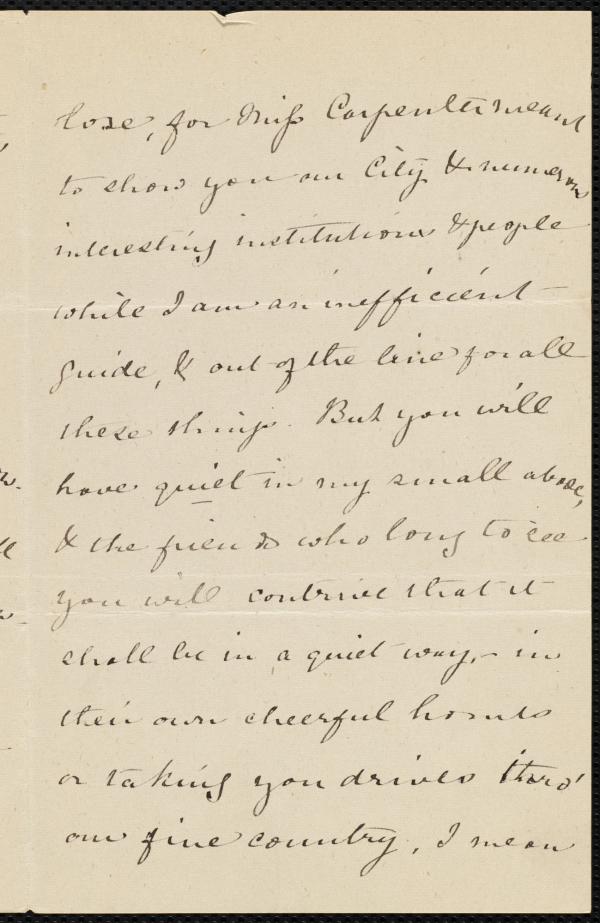 lose, for Miss Carpenter meant
to show you our City & numerous
interesting institutions & people
while I am an inefficient
guide, & out of the line for all
these things. But you will
have quiet in my small abode,
& the friends who long to see
you will contrive that it
shall be in a quiet way, - in
their own cheerful homes
or taking you drives thro'
our fine country, I mean